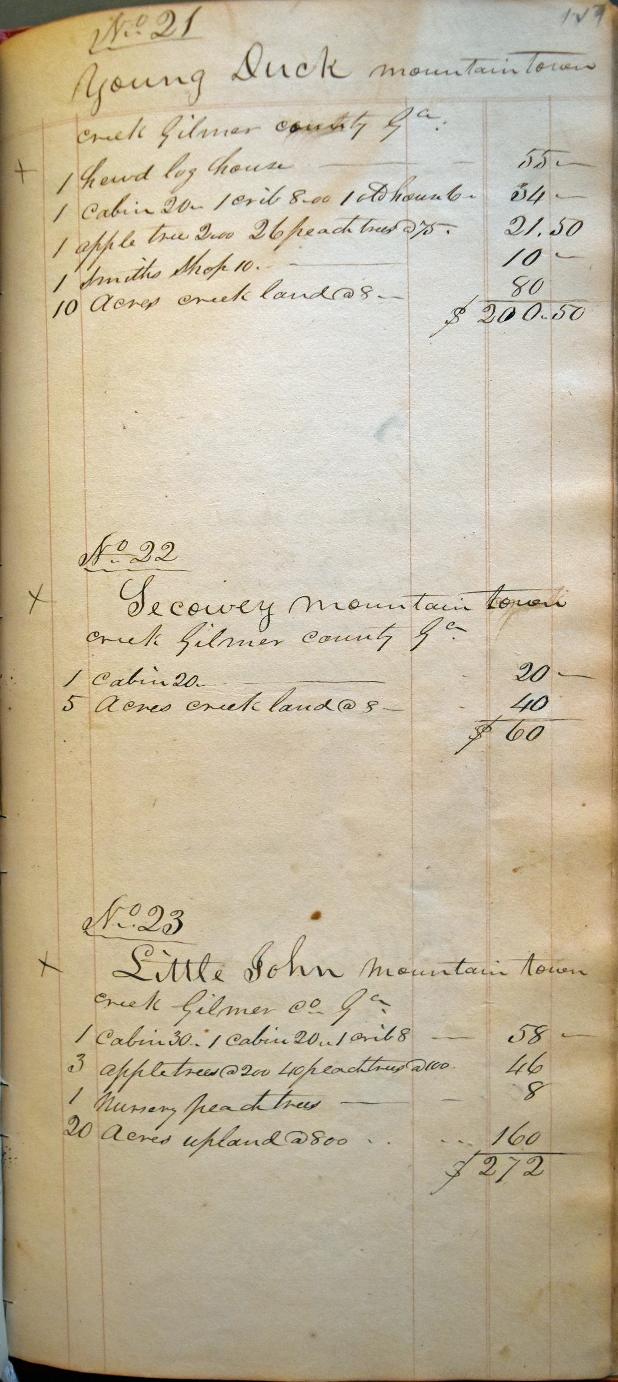 No. 21
Young Duck mountain town
creek Gilmer county Ga.
+ 1 hewd log house — 55 —
1 cabin 20 — 1 crib 8.00 1 old house 6 - 34 —
1 apple tree 2.00 26 peach trees @ 75 - 21.50
1 Smiths Shop 10. — 10 —
10 Acres creek land @ 8 — 80
$ 200.50
No. 22
x Secowey mountain town
creek Gilmer county Ga.
1 cabin 20 — 20 —
5 Acres creek land @ 8 — 40
$ 60
No. 23
x Little John mountain town
creek Gilmer co. Ga.
1 cabin 30 - 1 cabin 20 - 1 crib 8 — 58 —
3 apple trees @ 200 40 peach trees @ 100 46
1 Nursery peach trees — 8
20 Acres upland @ 800 .. ... 160
$ 272